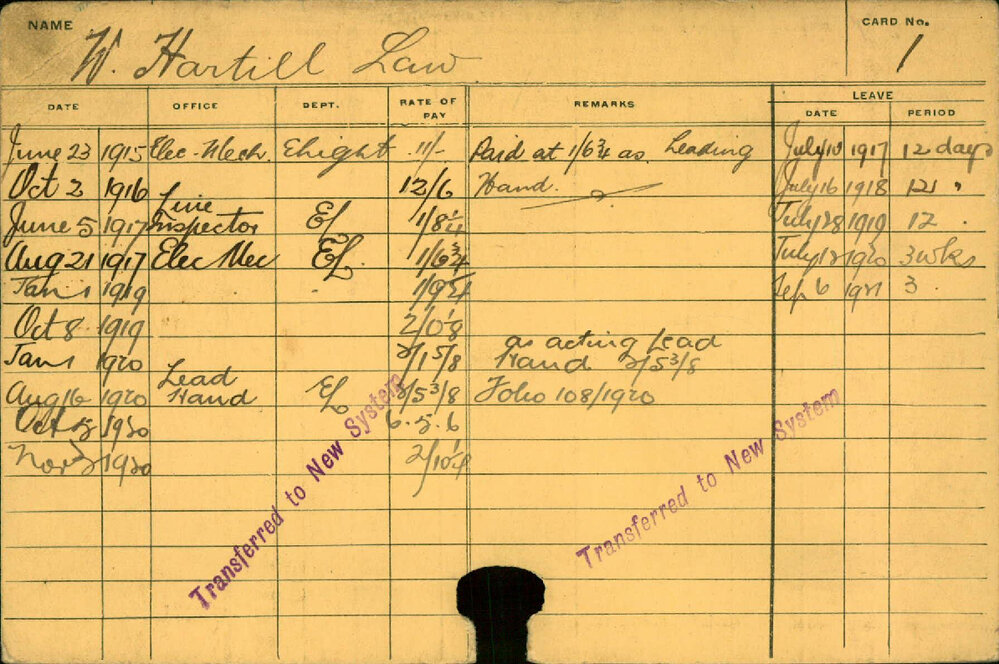 NAME W. Hartill Law CARD No. 1
LEAVE
DATE OFFICE DEPT. RATE OF PAY REMARKS DATE PERIOD
June 23 1915 Elec. Mech. Elight 11/- Paid at 1/6¾ as Leading July 10 1917 12 days
Oct 2 1916 12/6 Hand. July 16 1918 12 "
Line
June 5 1917 Inspector EL 1/8¼ July 28 1919 12 "
Aug 21 1917 Elec Mec EL 1/6¾ July 12 1920 3 wks
Jan 1 1919 Sep 6 1921 3
Oct 8 1919 2/0⅛
as acting Lead
Jan 1 1920 2/1⅝ Hand 2/5⅜
Lead
Aug 16 1920 Hand EL 2/5⅜ Folio 108/1920
Oct 1920 6.5.6
Nov 1920 2/10¼
Transferred to New System
Transferred to New System